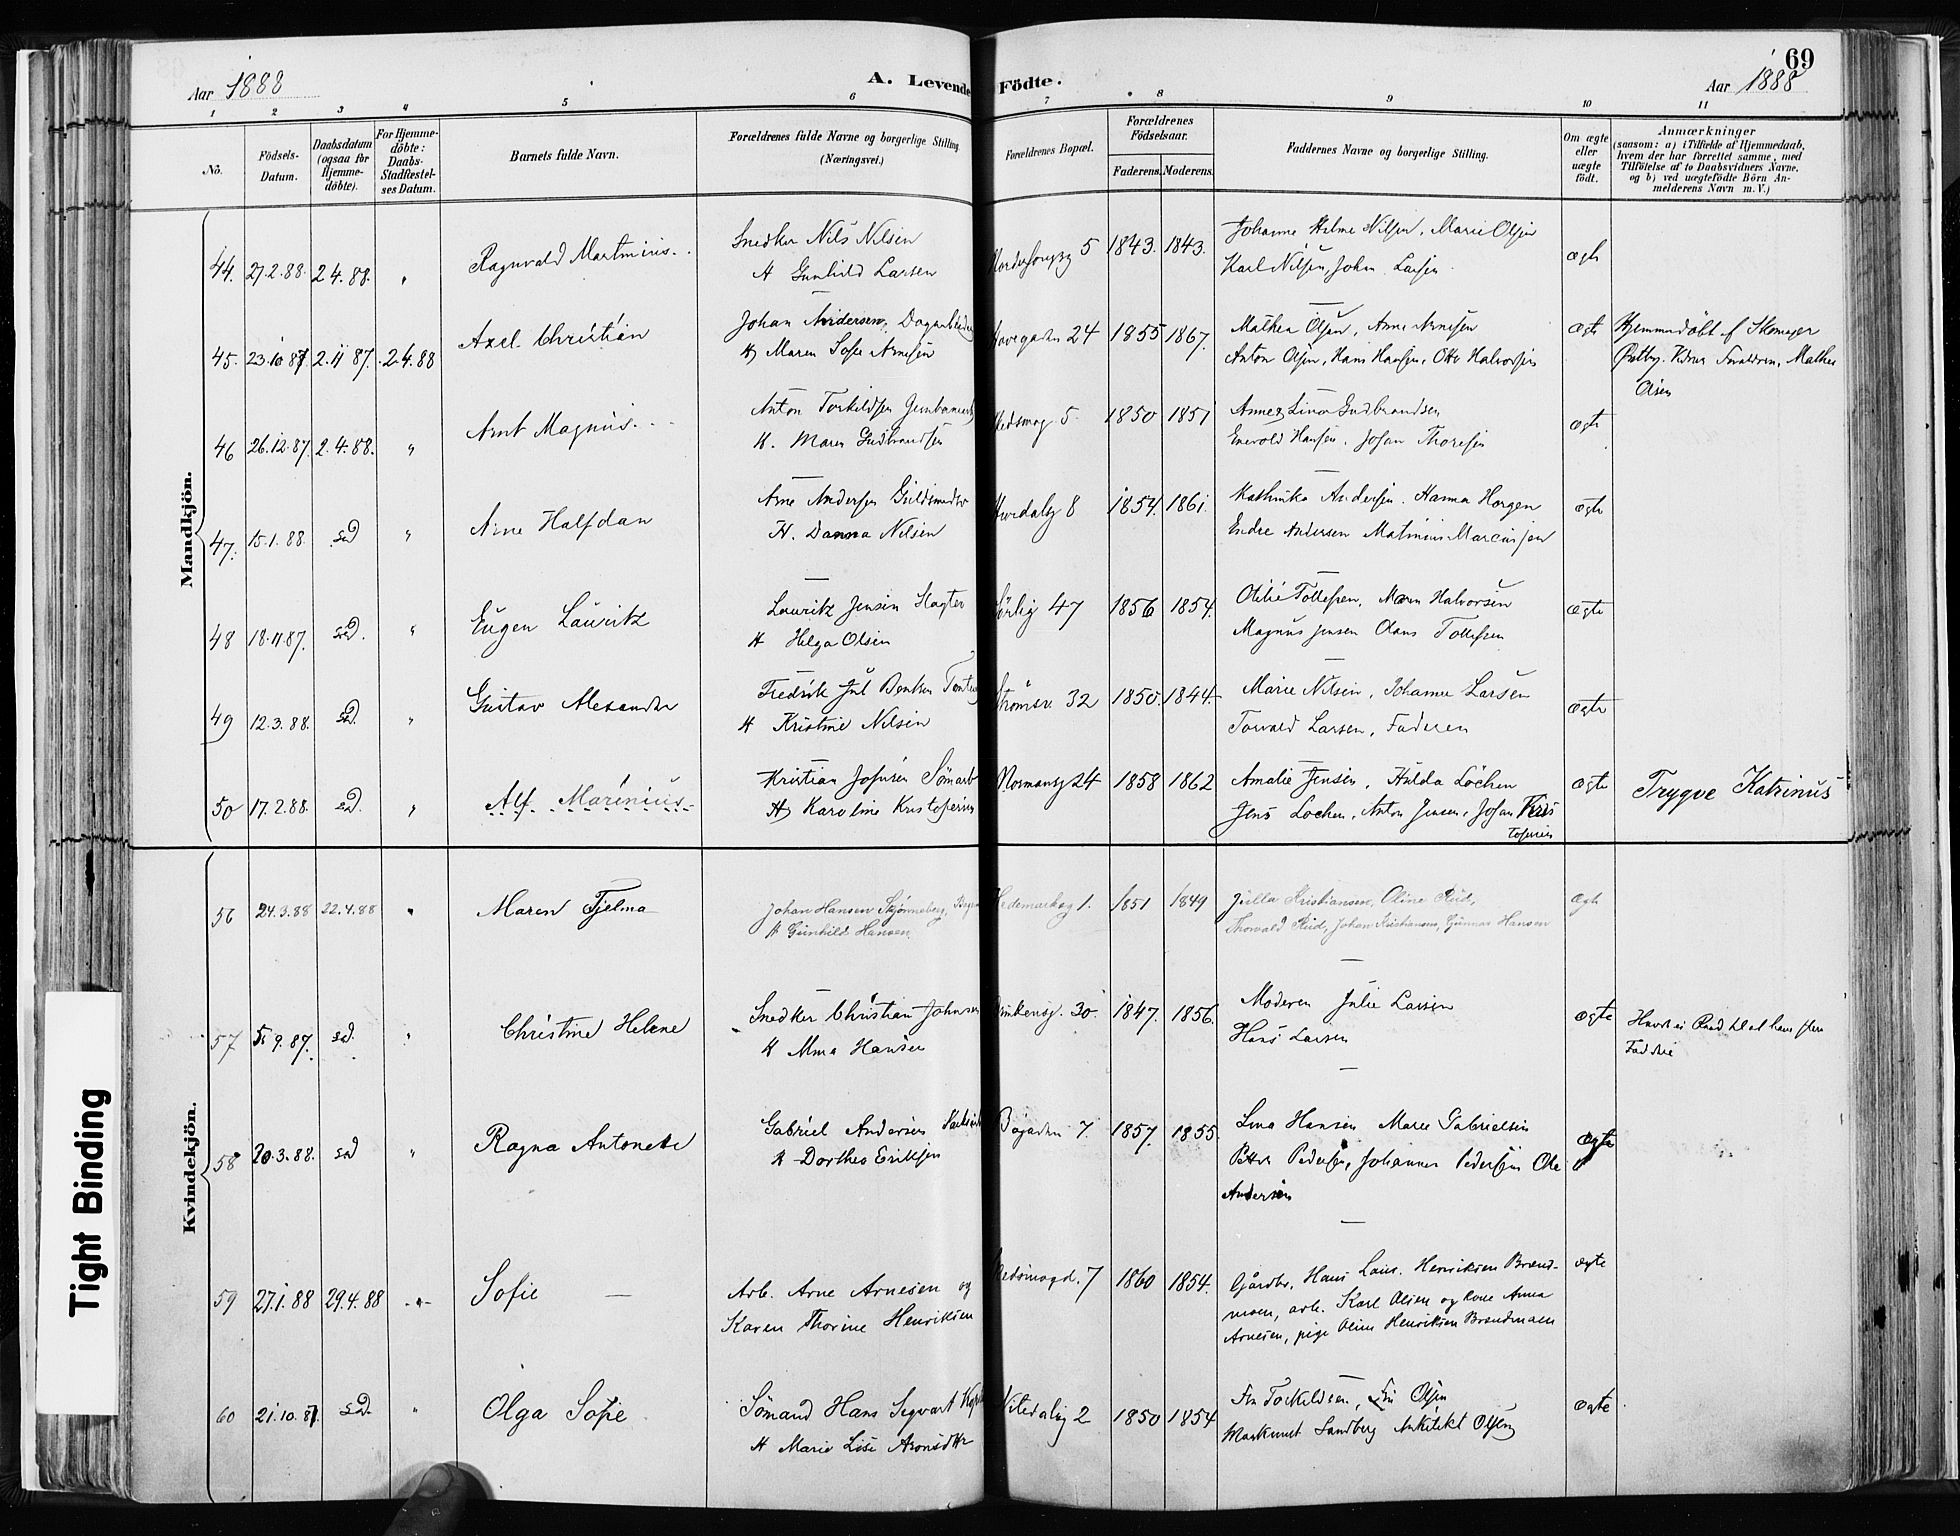 69
Aar 1888
A. Levende Födte.
Aar 1888
1 2 3 4 5 6 7 8 9 10 11
No.
Födsels-Datum.
Daabsdatum (ogsaa for Hjemmedöbte).
For Hjemmedöbte: Daabs-Stadfæstelses Datum.
Barnets fulde Navn.
Forældrenes fulde Navne og borgerlige Stilling (Næringsvei.)
Forældrenes Bopæl.
Forældrenes Födselsaar.
Faderens. Moderens.
Faddernes Navne og borgerlige Stilling.
Om ægte eller uægte födt.
Anmærkninger
(saasom: a) i Tilfælde af Hjemmedaab, hvem der har forrettet samme, med Tilföielse af to Daabsvidners Navne, og b) ved uægtefödte Börn Anmelderens Navn m. V.)
Mandkjön.
Snedker Nils Nilsen Johanne Helene Nilsen, Marie Olsen
44. 27.2.88. 2.4.88. " Ragnvald Martinius H Gunhild Larsen 5 1843. 1843. Karl Nilsen, John Larsen ægte
Johan Andersen, Mathea Olsen, Anne Arnesen Hjemmedöbt af Skomager
45. 23.10.87. 2.11 87. 2.4.88 Axel Christian H Maren Sofie Arnesen 24 1855 1867. Anton Olsen, Hans Hansen, Otto Halvorsen ægte Østby. Mathea
Olsen
Anton Torkildsen Anne Lina Gudbrandsen
46 26.12.87. 2.4.88. " Arnt Magnus H. Maren Gudbrandsen 5. 1850 1851 Enevold Hansen, Johan Thoresen ægte
Arne Andersen Guldsmed Kathinka Andersen. Hanna Horgen
47. 15.1.88. sad " Arne Halfdan H. Danna Nilsen 8 1854. 1861. Endre Andersen Matinius Marcusen ægte
Lauritz Jensen Slagter Otilie Tollefsen, Maren Halvorsen
48 18.11.87. sad. " Eugen Lauritz H Helga Olsen 47 1856 1854. Magnus Jensen Olaus Tollefsen ægte
Fredrik Jul Bentsen Marie Nilsen, Johanne Larsen
49 12.3.88. sad. " Gustav Alexander H Kristine Nilsen Strömsv. 32 1850. 1844. Torvald Larsen, Faderen ægte
Kristian Johnsen Sömand Amalie Jensen, Hulda Löchen
50 17.2.88. sad. " Alf Marinius H Karoline Kristofersen Normansg 24 1858 1862 Jens Lochen, Anton Jensen, Johan Kristofersen ægte Trygve Katrinus
Kvindekjön.
56 24.3.88 22.4.88 " Maren Tjelma Johan Hansen Skjönneberg, Hedemarksg 1. 1851 1849 Julla Kristiansen, Oline Rud, ægte
H Gunhild Hansen. Thorvald Rud, Johan Kristiansen, Gunnar Hansen
Snedker Christian Johnsen Moderen Julie Larsen
57 5.9.87. sad. " Christine Helene H Alma Hansen 30. 1847. 1856. Hans Larsen ægte
Faddere
Gabriel Andersen Lina Hansen Maren Gabrielsen
58 20.3.88. sad " Ragna Antonette H Dorthea Eriksen Bögaden 7. 1857. 1855. Petter Pedersen, Johannes Pedersen Ole ægte
Andersen
59 27.1.88 29.4.88 " Sofie Arb. Arne Arnesen og 7 1860 1854. Gårdbr. Hans Laur. Henriksen Brænd- ægte
Karen Thorine Henriksen moen, arb. Karl Olsen og kone Anna
Arnesen, pige Oline Henriksen Brændmoen
60 21.10.87. sad. " Olga Sofie Sömand Hans Segvart Nitedalsg 2 1850 1854 Fru Torkildsen, Fru Olsen ægte
H Marie Lise Aronsdtr Maskinist Sandberg Arkitekt Olsen
Tight Binding